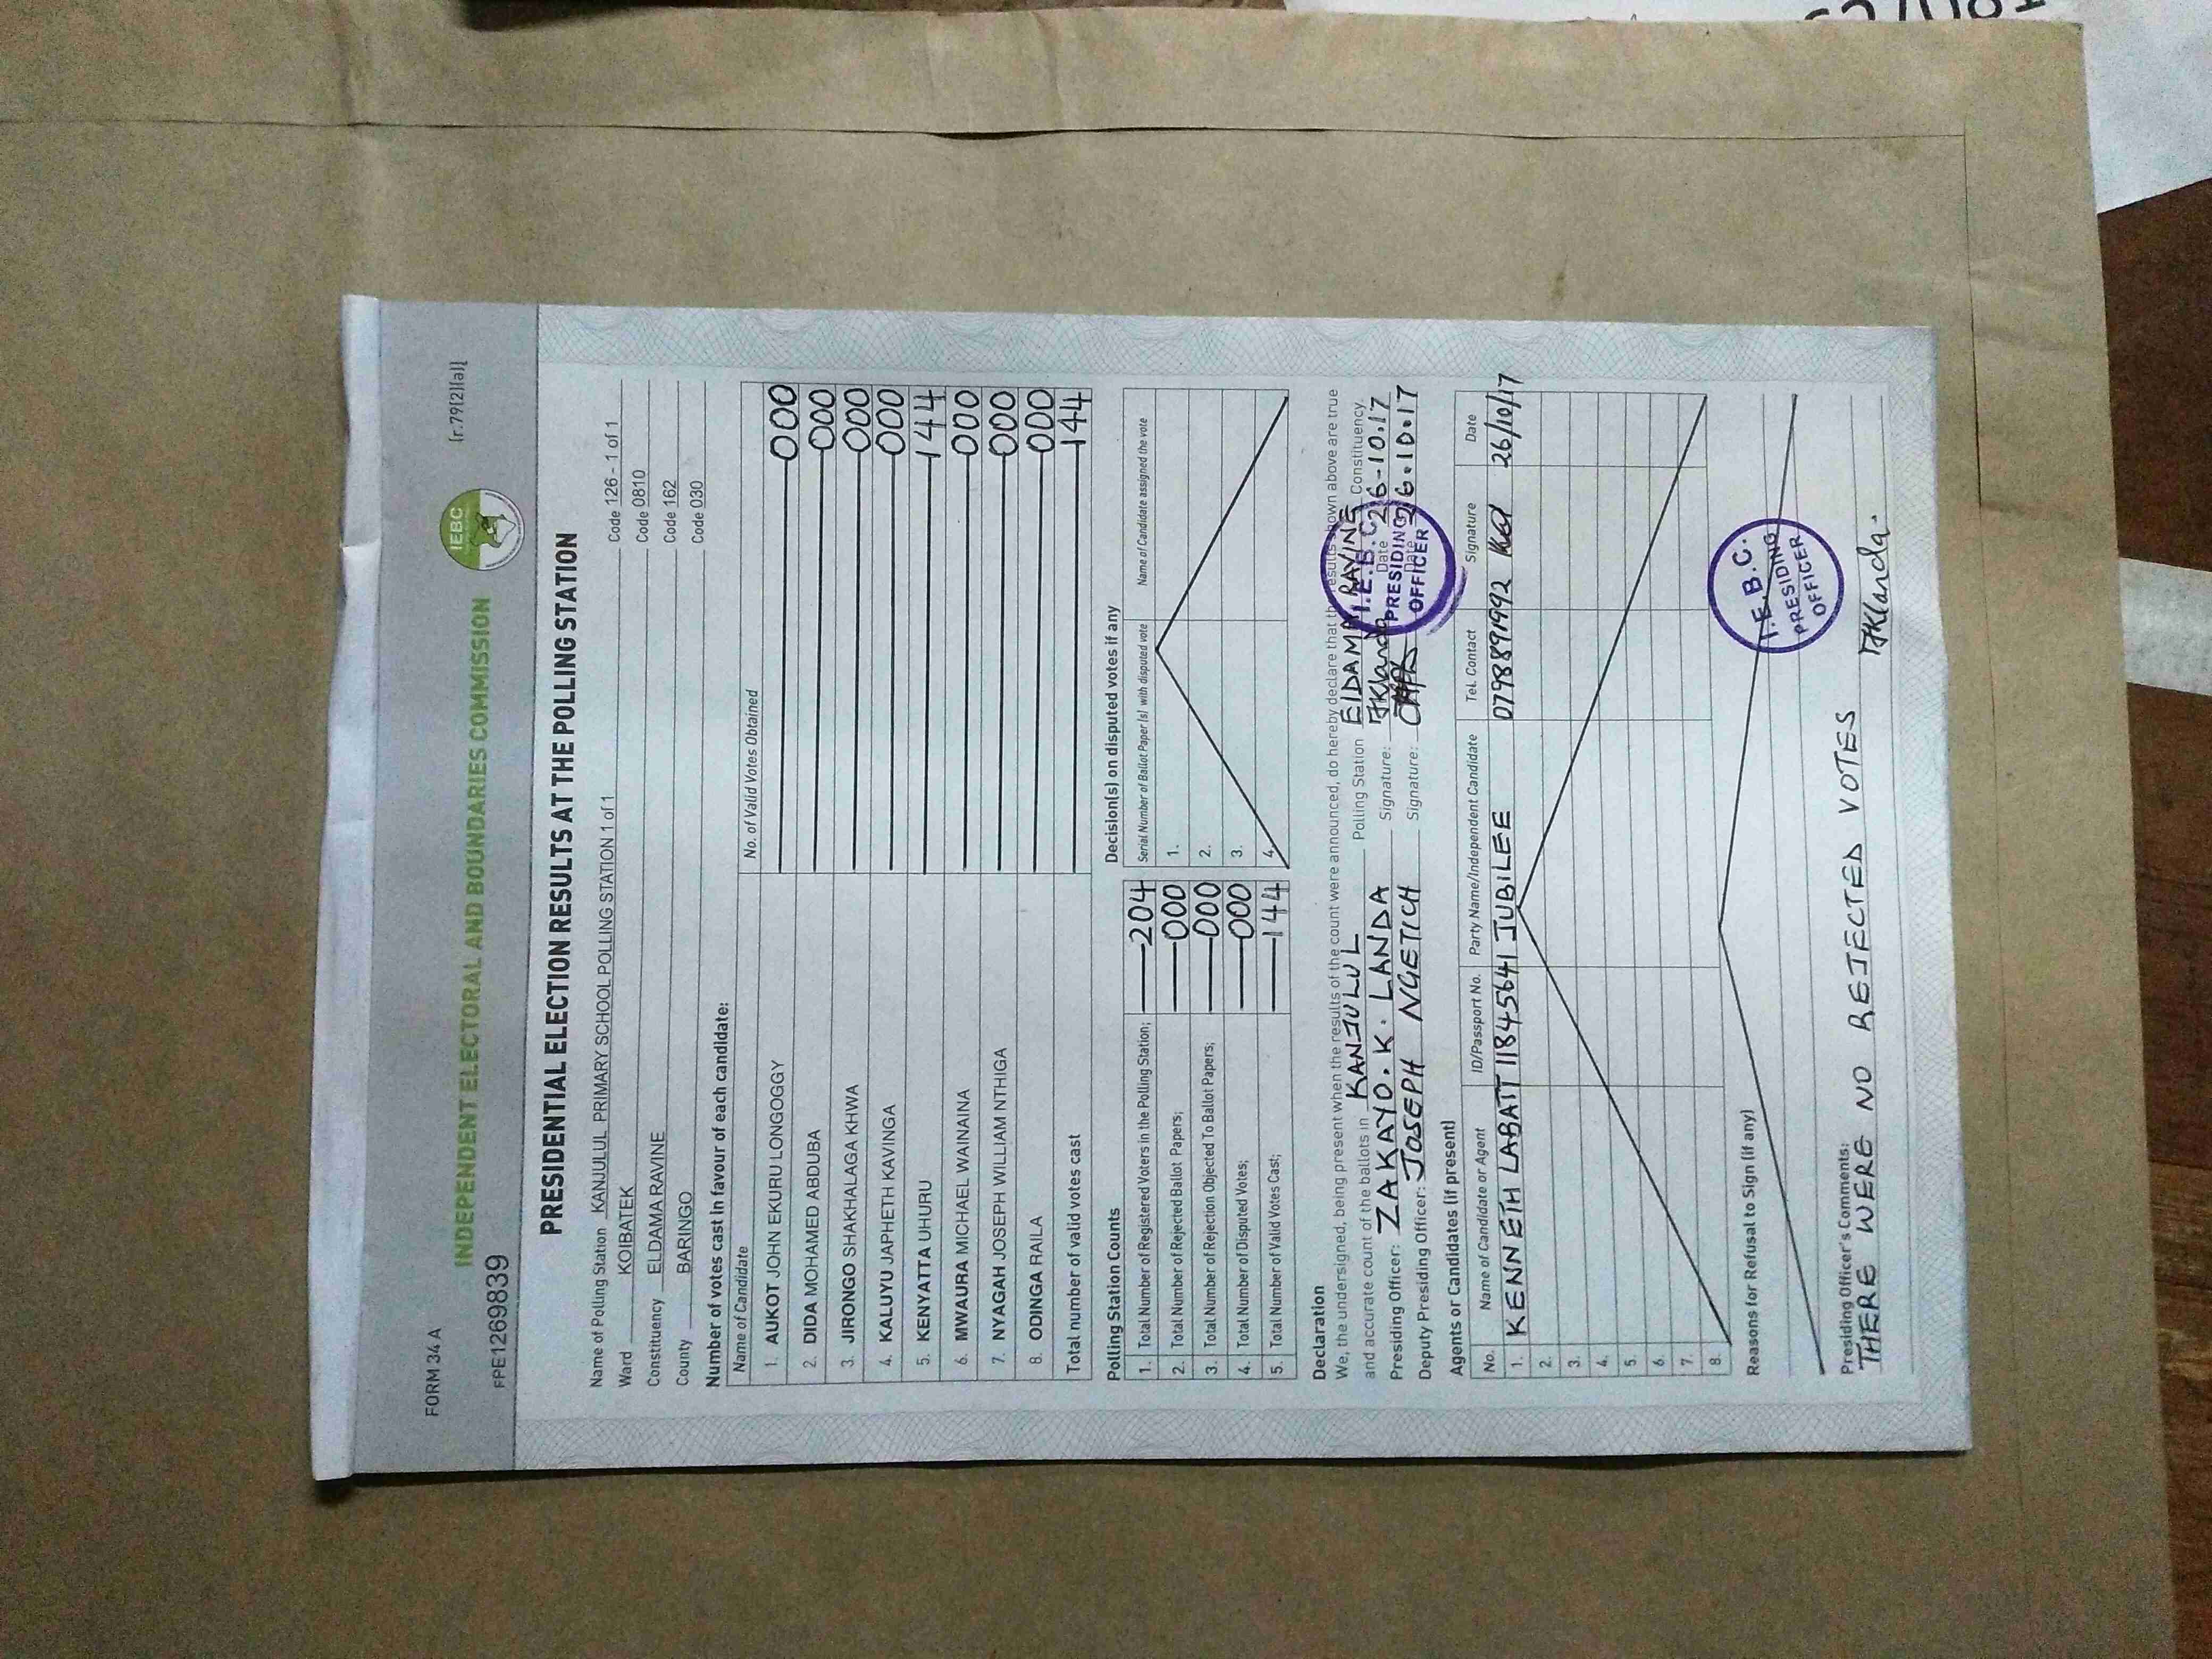 FORM 34 A
(r.79(2)(a))
INDEPENDENT ELECTORAL AND BOUNDARIES COMMISSION
IEBC
FPE1269839
PRESIDENTIAL ELECTION RESULTS AT THE POLLING STATION
Name of Polling Station KANJULUL PRIMARY SCHOOL POLLING STATION 1 of 1 Code 126 - 1 of 1
Ward KOIBATEK Code 0810
Constituency ELDAMA RAVINE Code 162
County BARINGO Code 030
Number of votes cast in favour of each candidate:
Name of Candidate No. of Valid Votes Obtained
1. AUKOT JOHN EKURU LONGOGGY 000
2. DIDA MOHAMED ABDUBA 000
3. JIRONGO SHAKHALAGA KHWA 000
4. KALUYU JAPHETH KAVINGA 000
5. KENYATTA UHURU 144
6. MWAURA MICHAEL WAINAINA 000
7. NYAGAH JOSEPH WILLIAM NTHIGA 000
8. ODINGA RAILA 000
Total number of valid votes cast 144
Polling Station Counts
1. Total Number of Registered Voters in the Polling Station; 204
2. Total Number of Rejected Ballot Papers; 000
3. Total Number of Rejection Objected To Ballot Papers; 000
4. Total Number of Disputed Votes; 000
5. Total Number of Valid Votes Cast; 144
Decision(s) on disputed votes if any
Serial Number of Ballot Paper (s) with disputed vote Name of Candidate assigned the vote
1.
2.
3.
4.
Declaration
We, the undersigned, being present when the results of the count were announced, do hereby declare that the results shown above are true
and accurate count of the ballots in KANJULUL Polling Station ELDAMA RAVINE Constituency.
Presiding Officer: ZAKAYO. K. LANDA Signature: ZKlanda Date 26-10.17
Deputy Presiding Officer: JOSEPH NGETICH Signature: Date 26.10.17
I.E.B.C.
PRESIDING
OFFICER
Agents or Candidates (if present)
No. Name of Candidate or Agent ID/Passport No. Party Name/Independent Candidate Tel. Contact Signature Date
1. KENNETH LABATT 11845641 JUBILEE 0798891992 26/10/17
2.
3.
4.
5.
6.
7.
8.
Reasons for Refusal to Sign (if any)
I.E.B.C.
PRESIDING
OFFICER
Presiding Officer's Comments:
THERE WERE NO REJECTED VOTES ZKlanda.